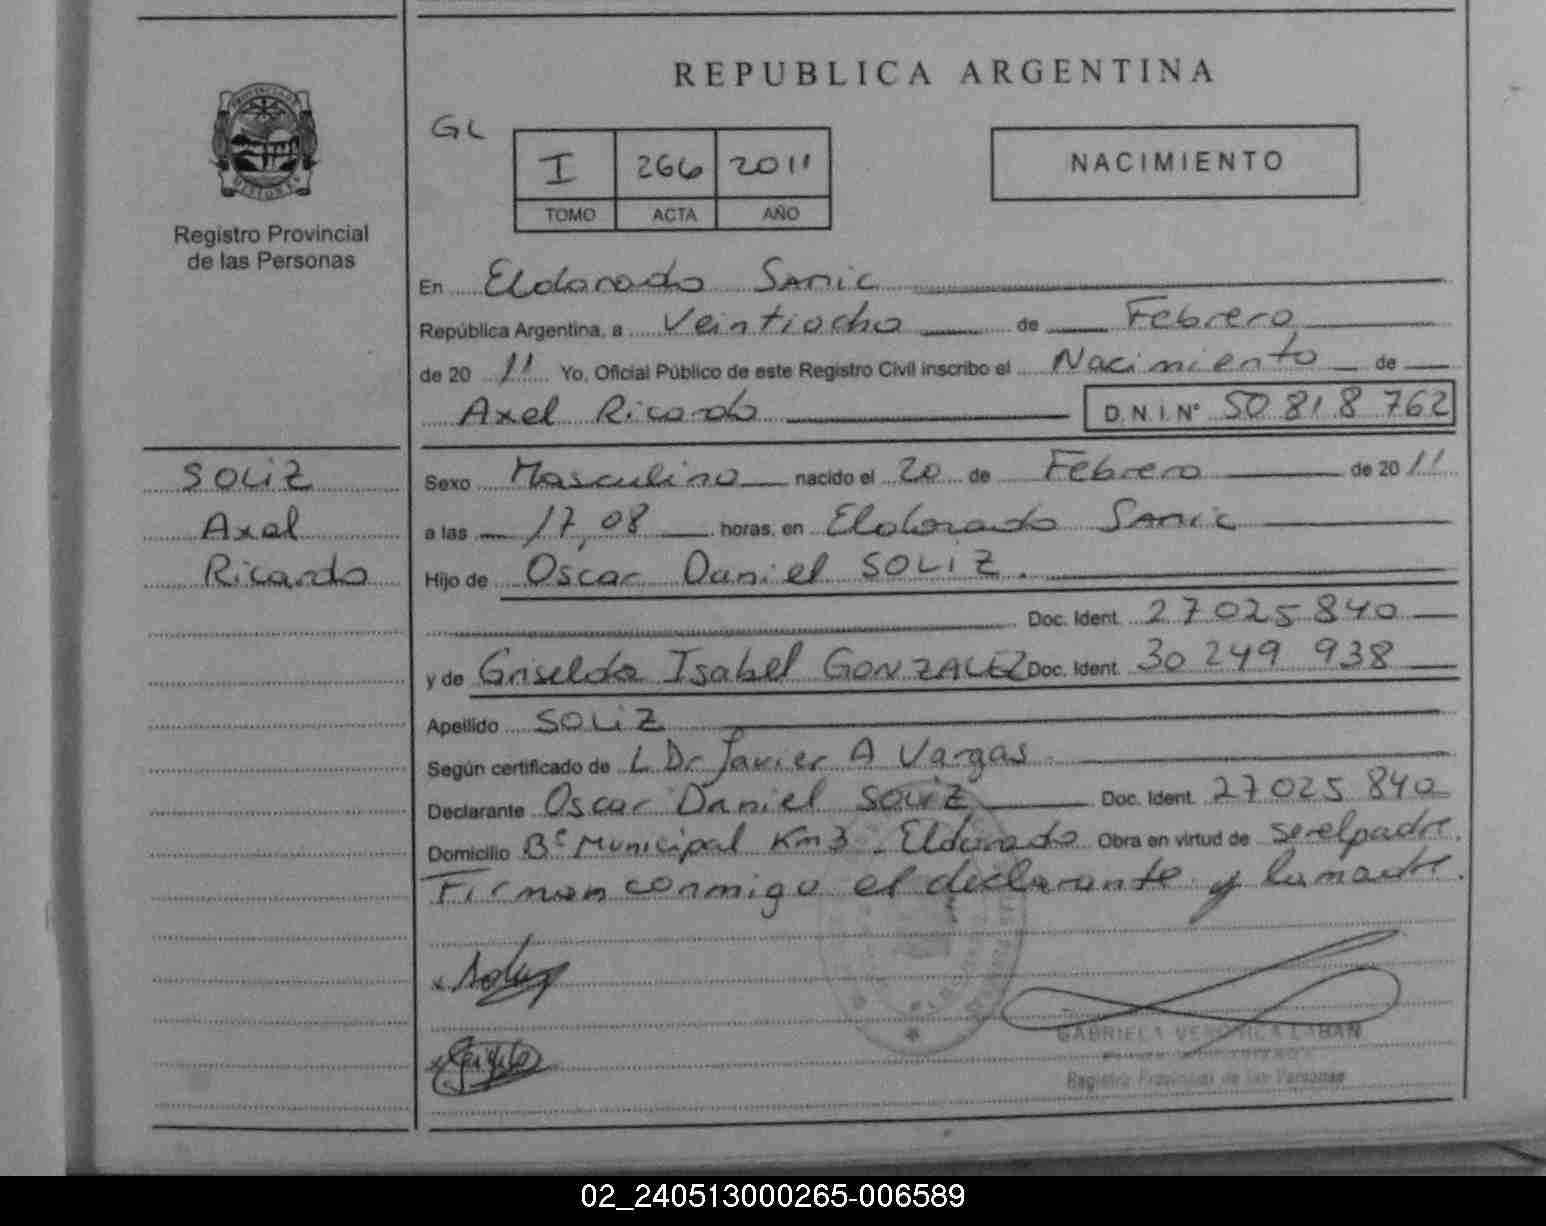 REPUBLICA ARGENTINA
GL
I 266 2011
TOMO ACTA AÑO
NACIMIENTO
PROVINCIA DE
MISIONES
Registro Provincial
de las Personas
En Eldorado Samic
República Argentina, a Veintiocho de Febrero
de 20 11 Yo, Oficial Público de este Registro Civil inscribo el Nacimiento de
Axel Ricardo D.N.I. Nº 50 818 762
SOLIZ
Axel
Ricardo
Sexo Masculino nacido el 20 de Febrero de 20 11
a las 17,08 horas, en Eldorado Samic
Hijo de Oscar Daniel SOLIZ.
Doc. Ident. 27025840
y de Griselda Isabel GONZALEZ Doc. Ident. 30 249 938
Apellido SOLIZ
Según certificado de L Dr Javier A Vargas
Declarante Oscar Daniel SOLIZ Doc. Ident. 27025840
Domicilio Bº Municipal Km3. Eldorado Obra en virtud de ser el padre.
Firman conmigo el declarante y la madre.
GABRIELA VERONICA LABAN
Registro Provincial de las Personas
02_240513000265-006589